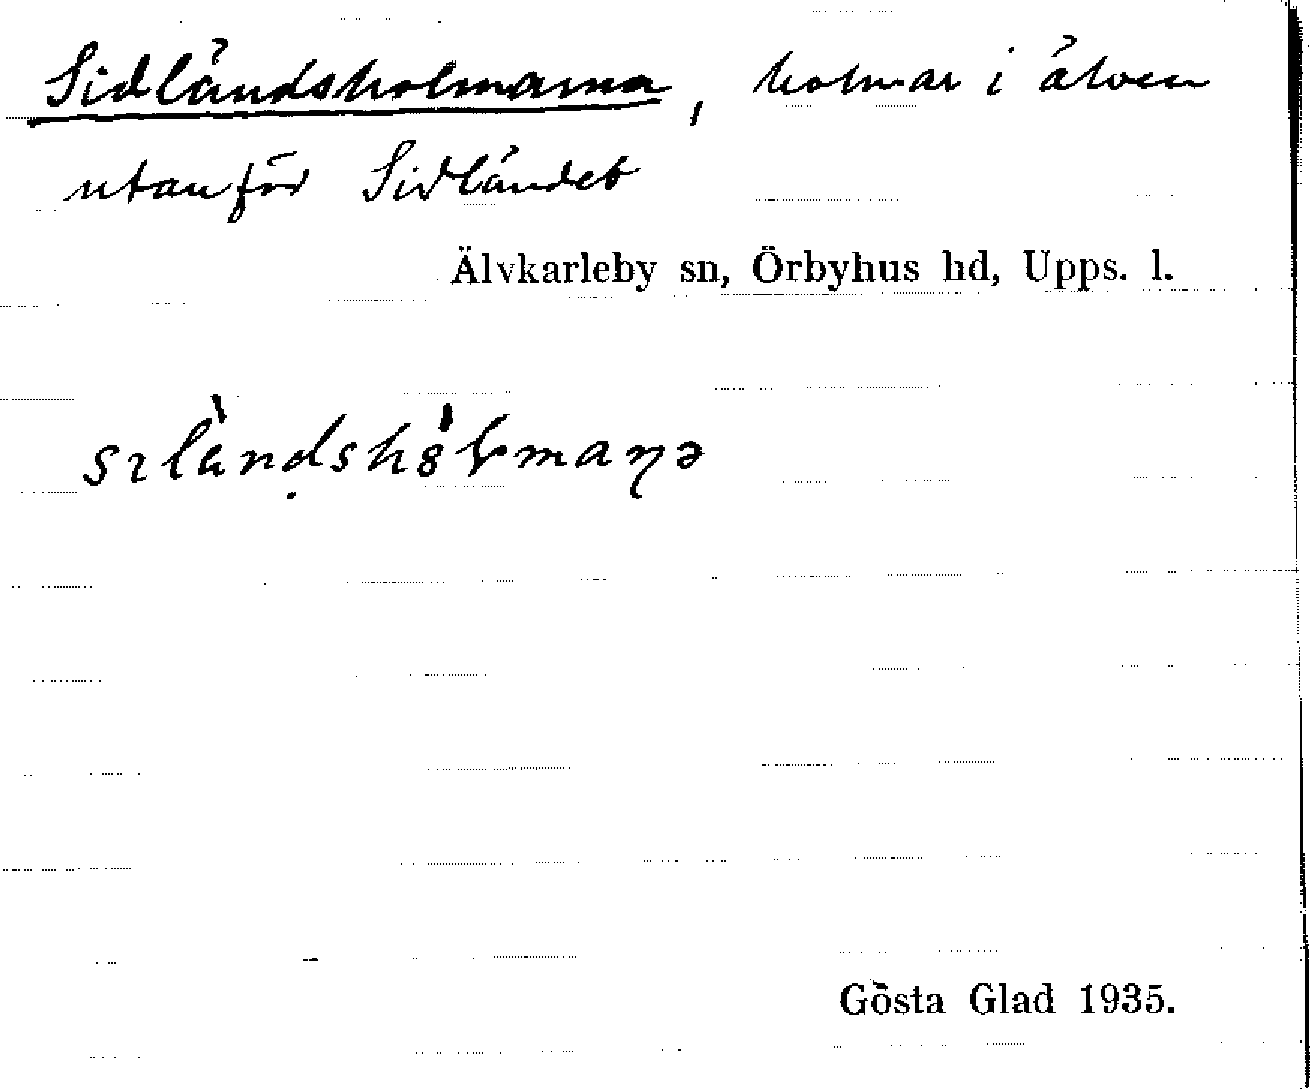 Sidländsholmarna, holmar i älven
utanför Sidländet
Älvkarleby sn, Örbyhus hd, Upps. l.
Gösta Glad 1935.